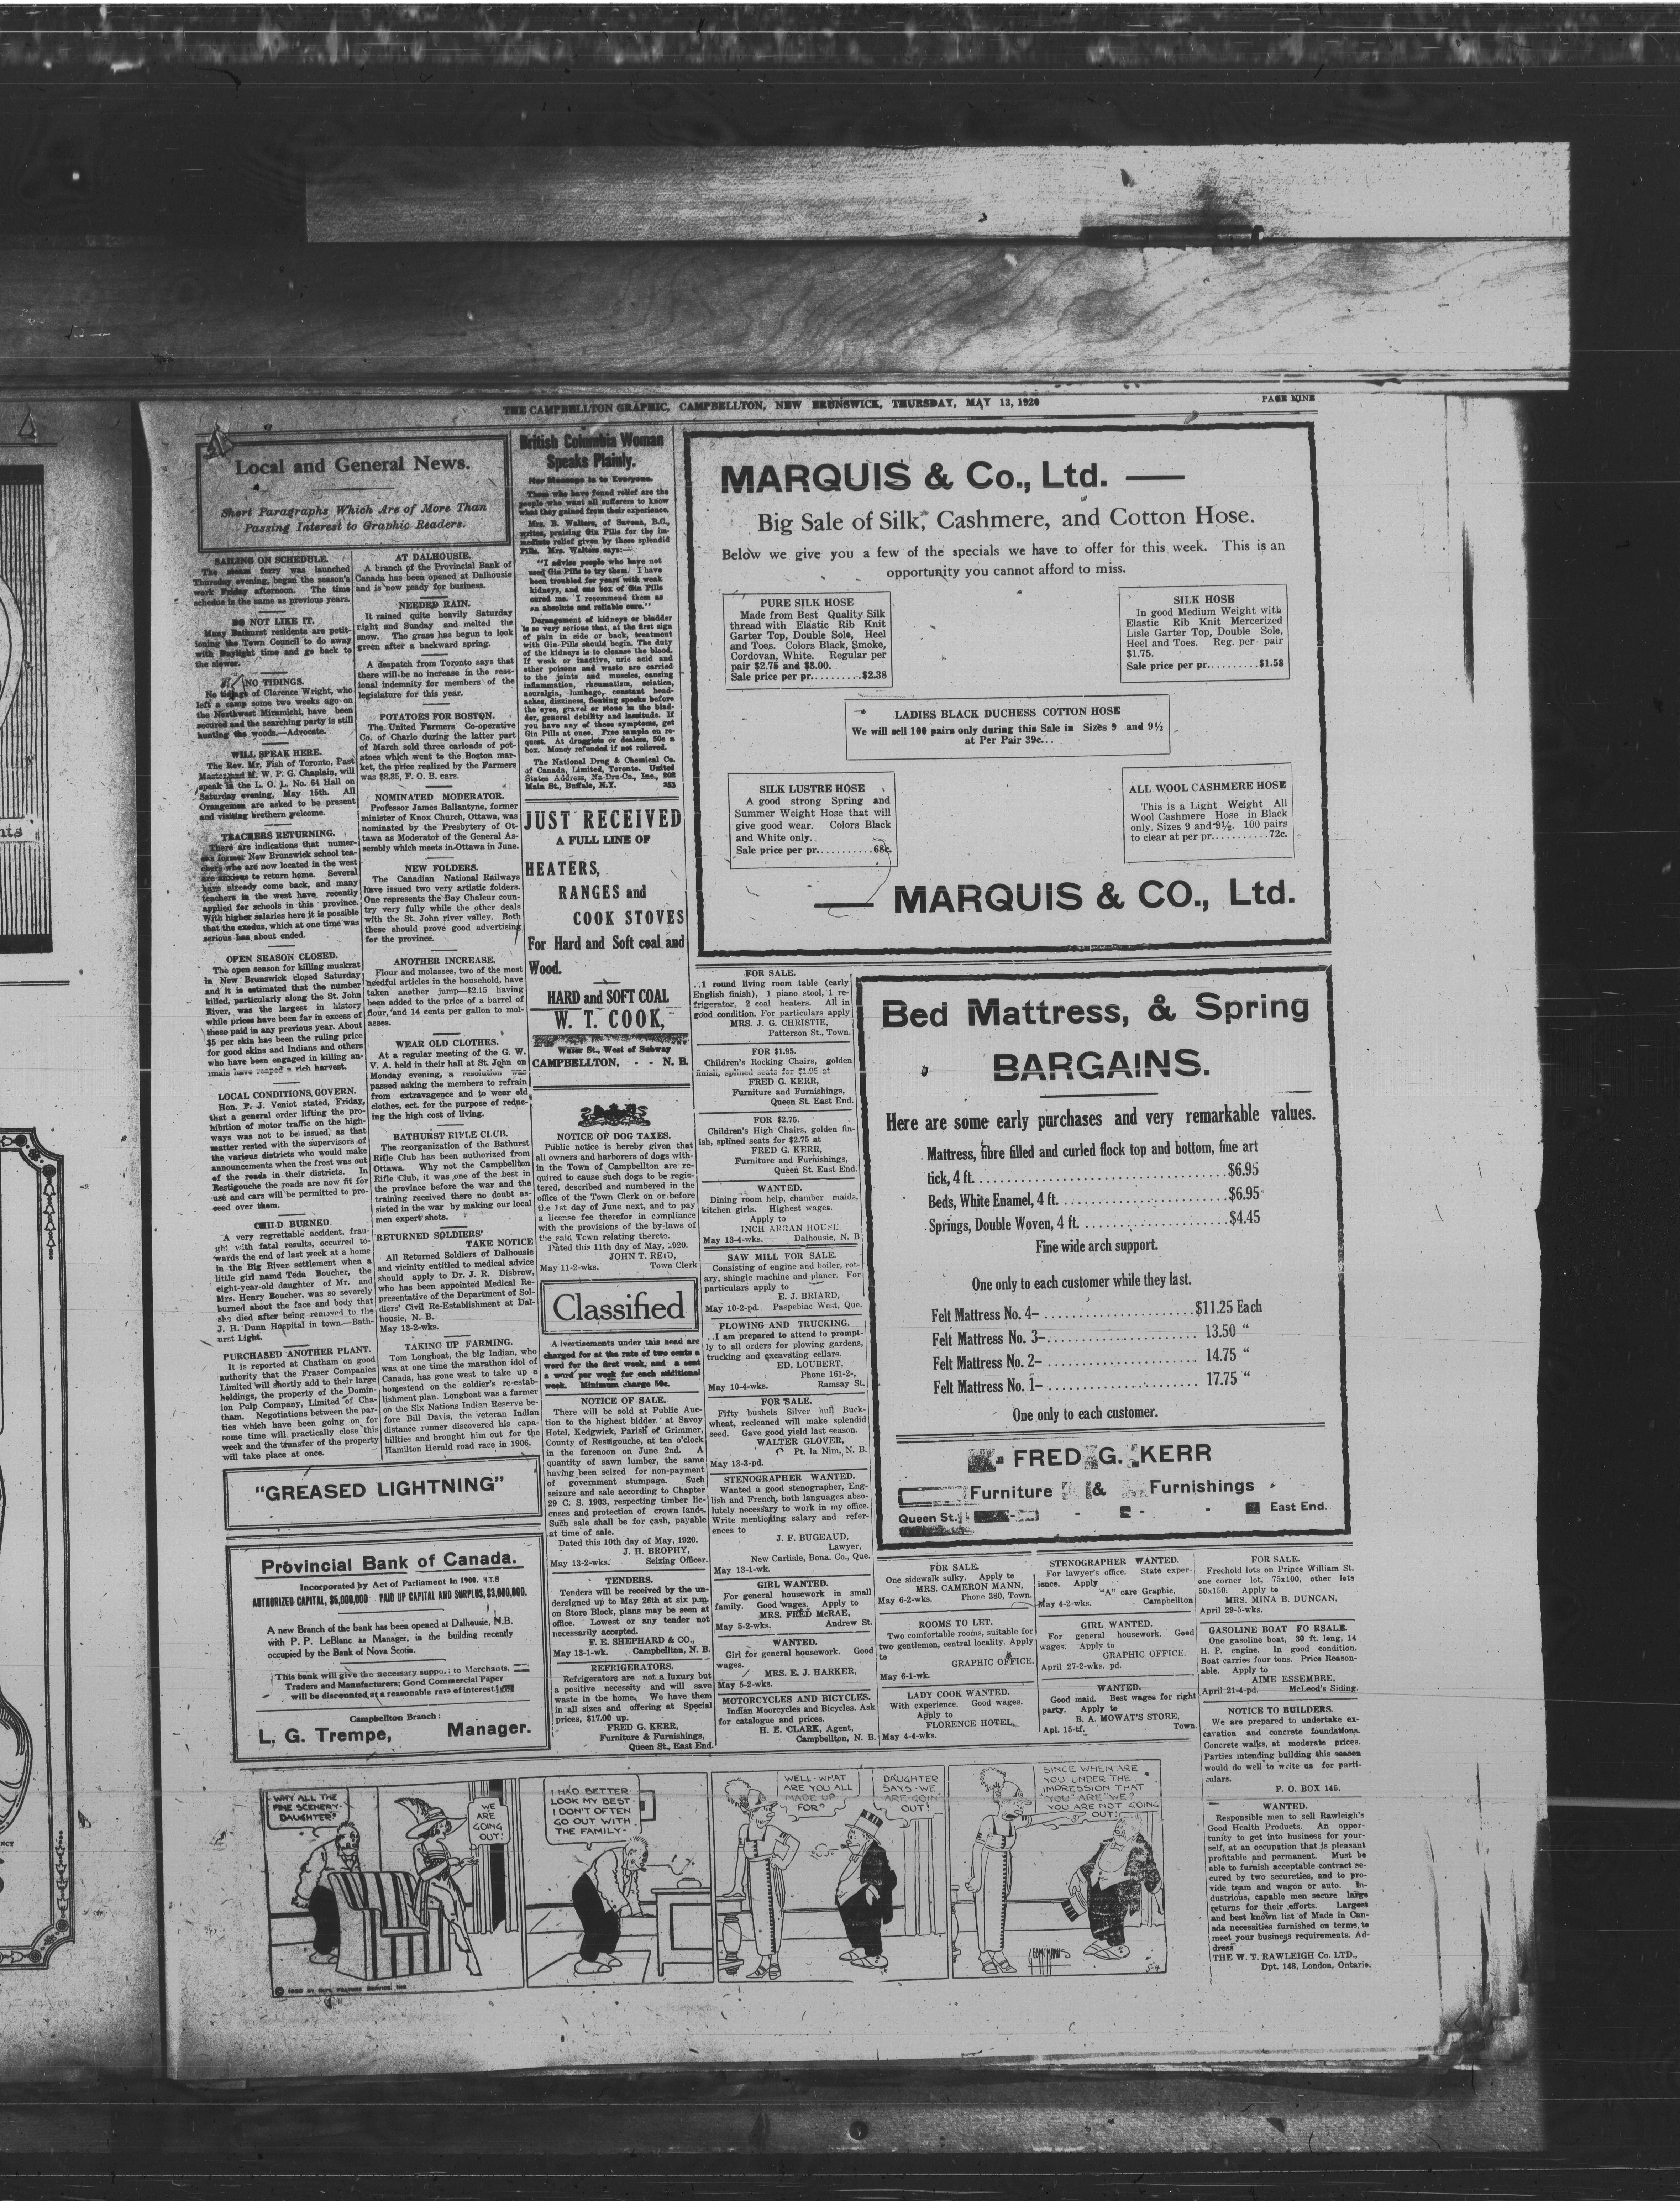 THE CAMPBELLTON GRAPHIC, CAMPBELLTON, NEW BRUNSWICK, THURSDAY, MAY 13, 1920
PAGE NINE
Local and General News.
Short Paragraphs Which Are of More Than
Passing Interest to Graphic Readers.
SAILING ON SCHEDULE.
The steam ferry was launched
Thursday evening, began the season's
work Friday afternoon. The time
schedue is the same as previous years.
DO NOT LIKE IT.
Many Bathurst residents are petit-
ioning the Town Council to do away
with Daylight time and go back to
the slower.
NO TIDINGS.
No tidings of Clarence Wright, who
left a camp some two weeks ago on
the Northwest Miramichi, have been
secured and the searching party is still
hunting the woods.—Advocate.
WILL SPEAK HERE.
The Rev. Mr. Fish of Toronto, Past
Master and M. W. P. G. Chaplain, will
speak in the L. O. L. No. 64 Hall on
Saturday evening, May 15th. All
Orangemen are asked to be present
and visiting brethern welcome.
TEACHERS RETURNING.
There are indications that numer-
ous former New Brunswick school tea-
chers who are now located in the west
are anxious to return home. Several
have already come back, and many
teachers in the west have recently
applied for schools in this province.
With higher salaries here it is possible
that the exodus, which at one time was
serious has about ended.
OPEN SEASON CLOSED.
The open season for killing muskrat
in New Brunswick closed Saturday
and it is estimated that the number
killed, particularly along the St. John
River, was the largest in history
while prices have been far in excess of
those paid in any previous year. About
$5 per skin has been the ruling price
for good skins and Indians and others
who have been engaged in killing an-
imals have reaped a rich harvest.
LOCAL CONDITIONS GOVERN.
Hon. P. J. Veniot stated, Friday,
that a general order lifting the pro-
hibition of motor traffic on the high-
ways was not to be issued, as that
matter rested with the supervisors of
the various districts who would make
announcements when the frost was out
of the roads in their districts. In
Restigouche the roads are now fit for
use and cars will be permitted to pro-
ceed over them.
CHILD BURNED.
A very regrettable accident, frau-
ght with fatal results, occurred to-
wards the end of last week at a home
in the Big River settlement when a
little girl namd Teda Boucher, the
eight-year-old daughter of Mr. and
Mrs. Henry Boucher, was so severely
burned about the face and body that
she died after being removed to the
J. H. Dunn Hospital in town.—Bath-
urst Light.
PURCHASED ANOTHER PLANT.
It is reported at Chatham on good
authority that the Fraser Companies
Limited will shortly add to their large
holdings, the property of the Domin-
ion Pulp Company, Limited of Cha-
tham. Negotiations between the par-
ties which have been going on for
some time will practically close this
week and the transfer of the property
will take place at once.
AT DALHOUSIE.
A branch of the Provincial Bank of
Canada has been opened at Dalhousie
and is now ready for business.
NEEDED RAIN.
It rained quite heavily Saturday
night and Sunday and melted the
snow. The grass has begun to look
green after a backward spring.
A despatch from Toronto says that
there will be no increase in the sess-
ional indemnity for members of the
legislature for this year.
POTATOES FOR BOSTON.
The United Farmers' Co-operative
Co. of Charlo during the latter part
of March sold three carloads of pot-
atoes which went to the Boston mar-
ket, the price realized by the Farmers
was $8.35, F. O. B. cars.
NOMINATED MODERATOR.
Professor James Ballantyne, former
minister of Knox Church, Ottawa, was
nominated by the Presbytery of Ot-
tawa as Moderator of the General As-
sembly which meets in Ottawa in June.
NEW FOLDERS.
The Canadian National Railways
have issued two very artistic folders.
One represents the Bay Chaleur coun-
try very fully while the other deals
with the St. John river valley. Both
these should prove good advertising
for the province.
ANOTHER INCREASE.
Flour and molasses, two of the most
needful articles in the household, have
taken another jump—$2.15 having
been added to the price of a barrel of
flour, and 14 cents per gallon to mol-
asses.
WEAR OLD CLOTHES.
At a regular meeting of the G. W.
V. A. held in their hall at St. John on
Monday evening, a resolution was
passed asking the members to refrain
from extravagence and to wear old
clothes, ect. for the purpose of reduc-
ing the high cost of living.
BATHURST RIFLE CLUB.
The reorganization of the Bathurst
Rifle Club has been authorized from
Ottawa. Why not the Campbellton
Rifle Club, it was one of the best in
the province before the war and the
training received there no doubt as-
sisted in the war by making our local
men expert shots.
RETURNED SOLDIERS'
TAKE NOTICE
All Returned Soldiers of Dalhousie
and vicinity entitled to medical advice
should apply to Dr. J. R. Disbrow,
who has been appointed Medical Re-
presentative of the Department of Sol-
diers' Civil Re-Establishment at Dal-
housie, N. B.
May 13-2-wks.
TAKING UP FARMING.
Tom Longboat, the big Indian, who
was at one time the marathon idol of
Canada, has gone west to take up a
homestead on the soldier's re-estab-
lishment plan. Longboat was a farmer
on the Six Nations Indian Reserve be-
fore Bill Davis, the veteran Indian
distance runner discovered his capa-
bilities and brought him out for the
Hamilton Herald road race in 1906.
"GREASED LIGHTNING"
Provincial Bank of Canada.
Incorporated by Act of Parliament in 1900.
AUTHORIZED CAPITAL, $5,000,000 PAID UP CAPITAL AND SURPLUS, $3,000,000.
A new Branch of the bank has been opened at Dalhousie, N.B.
with P. P. LeBlanc as Manager, in the building recently
occupied by the Bank of Nova Scotia.
This bank will give the necessary support to Merchants,
Traders and Manufacturers; Good Commercial Paper
will be discounted at a reasonable rate of interest.
Campbellton Branch:
L. G. Trempe, Manager.
British Columbia Woman
Speaks Plainly.
Her Message is to Everyone.
Those who have found relief are the
people who want all sufferers to know
what they gained from their experience.
Mrs. B. Walters, of Savona, B.C.,
writes, praising Gin Pills for the im-
mediate relief given by these splendid
Pills. Mrs. Walters says:—
"I advise people who have not
used Gin Pills to try them. I have
been troubled for years with weak
kidneys, and one box of Gin Pills
cured me. I recommend them as
an absolute and reliable cure."
Derangement of kidneys or bladder
is so very serious that, at the first sign
of pain in side or back, treatment
with Gin-Pills should begin. The duty
of the kidneys is to cleanse the blood.
If weak or inactive, uric acid and
other poisons and waste are carried
to the joints and muscles, causing
inflammation, rheumatism, sciatica,
neuralgia, lumbago, constant head-
aches, dizziness, floating specks before
the eyes, gravel or stone in the blad-
der, general debility and lassitude. If
you have any of these symptoms, get
Gin Pills at once. Free sample on re-
quest. At druggists or dealers, 50c a
box. Money refunded if not relieved.
The National Drug & Chemical Co.
of Canada, Limited, Toronto. United
States Address, Na-Dru-Co., Inc., 202
Main St., Buffalo, N.Y. 253
JUST RECEIVED
A FULL LINE OF
HEATERS,
RANGES and
COOK STOVES
For Hard and Soft coal and
Wood.
HARD and SOFT COAL
W. T. COOK,
Water St., West of Subway
CAMPBELLTON, - - N. B.
NOTICE OF DOG TAXES.
Public notice is hereby given that
all owners and harborers of dogs with-
in the Town of Campbellton are re-
quired to cause such dogs to be regis-
tered, described and numbered in the
office of the Town Clerk on or before
the 1st day of June next, and to pay
a license fee therefor in compliance
with the provisions of the by-laws of
the said Town relating thereto.
Dated this 11th day of May, 1920.
JOHN T. REID,
May 11-2-wks. Town Clerk
Classified
Advertisements under this head are
charged for at the rate of two cents a
word for the first week, and a cent
a word per week for each additional
week. Minimum charge 50c.
NOTICE OF SALE.
There will be sold at Public Auc-
tion to the highest bidder at Savoy
Hotel, Kedgwick, Parish of Grimmer,
County of Restigouche, at ten o'clock
in the forenoon on June 2nd. A
quantity of sawn lumber, the same
having been seized for non-payment
of government stumpage. Such
seizure and sale according to Chapter
29 C. S. 1903, respecting timber lic-
enses and protection of crown lands.
Such sale shall be for cash, payable
at time of sale.
Dated this 10th day of May, 1920.
J. H. BROPHY,
May 13-2-wks. Seizing Officer.
TENDERS.
Tenders will be received by the un-
dersigned up to May 26th at six p.m.
on Store Block, plans may be seen at
office. Lowest or any tender not
necessarily accepted.
F. E. SHEPHARD & CO.,
May 13-1-wk. Campbellton, N. B.
REFRIGERATORS.
Refrigerators are not a luxury but
a positive necessity and will save
waste in the home. We have them
in all sizes and offering at Special
prices, $17.00 up.
FRED G. KERR,
Furniture & Furnishings,
Queen St., East End.
MARQUIS & Co., Ltd. —
Big Sale of Silk, Cashmere, and Cotton Hose.
Below we give you a few of the specials we have to offer for this week. This is an
opportunity you cannot afford to miss.
PURE SILK HOSE
Made from Best Quality Silk
thread with Elastic Rib Knit
Garter Top, Double Sole, Heel
and Toes. Colors Black, Smoke,
Cordovan, White. Regular per
pair $2.75 and $3.00.
Sale price per pr..........$2.38
SILK HOSE
In good Medium Weight with
Elastic Rib Knit Mercerized
Lisle Garter Top, Double Sole,
Heel and Toes. Reg. per pair
$1.75.
Sale price per pr..........$1.58
LADIES BLACK DUCHESS COTTON HOSE
We will sell 100 pairs only during this Sale in Sizes 9 and 9½
at Per Pair 39c...
SILK LUSTRE HOSE
A good strong Spring and
Summer Weight Hose that will
give good wear. Colors Black
and White only.
Sale price per pr..........68c.
ALL WOOL CASHMERE HOSE
This is a Light Weight All
Wool Cashmere Hose in Black
only. Sizes 9 and 9½. 100 pairs
to clear at per pr...........72c.
— MARQUIS & CO., Ltd.
FOR SALE.
..1 round living room table (early
English finish), 1 piano stool, 1 re-
frigerator, 2 coal heaters. All in
good condition. For particulars apply
MRS. J. G. CHRISTIE,
Patterson St., Town.
FOR $1.95.
Children's Rocking Chairs, golden
finish, splined seats for $1.95 at
FRED G. KERR,
Furniture and Furnishings,
Queen St. East End.
FOR $2.75.
Children's High Chairs, golden fin-
ish, splined seats for $2.75 at
FRED G. KERR,
Furniture and Furnishings,
Queen St. East End.
WANTED.
Dining room help, chamber maids,
kitchen girls. Highest wages.
Apply to
INCH ARRAN HOUSE
May 13-4-wks. Dalhousie, N. B
SAW MILL FOR SALE.
Consisting of engine and boiler, rot-
ary, shingle machine and planer. For
particulars apply to
E. J. BRIARD,
May 10-2-pd. Paspebiac West, Que.
PLOWING AND TRUCKING.
..I am prepared to attend to prompt-
ly to all orders for plowing gardens,
trucking and excavating cellars.
ED. LOUBERT,
Phone 161-2-,
May 10-4-wks. Ramsay St.
FOR SALE.
Fifty bushels Silver hull Buck-
wheat, recleaned will make splendid
seed. Gave good yield last season.
WALTER GLOVER,
Pt. la Nim, N. B.
May 13-3-pd.
STENOGRAPHER WANTED.
Wanted a good stenographer, Eng-
lish and French, both languages abso-
lutely necessary to work in my office.
Write mentioning salary and refer-
ences to
J. F. BUGEAUD,
Lawyer,
New Carlisle, Bona. Co., Que.
May 13-1-wk.
GIRL WANTED.
For general housework in small
family. Good wages. Apply to
MRS. FRED McRAE,
May 5-2-wks. Andrew St.
WANTED.
Girl for general housework. Good
wages.
MRS. E. J. HARKER,
May 5-2-wks.
MOTORCYCLES AND BICYCLES.
Indian Moorcycles and Bicycles. Ask
for catalogue and prices.
H. E. CLARK, Agent,
Campbellton, N. B.
Bed Mattress, & Spring
BARGAINS.
Here are some early purchases and very remarkable values.
Mattress, fibre filled and curled flock top and bottom, fine art
tick, 4 ft. ........................................ $6.95
Beds, White Enamel, 4 ft. ........................ $6.95
Springs, Double Woven, 4 ft. ..................... $4.45
Fine wide arch support.
One only to each customer while they last.
Felt Mattress No. 4– .................... $11.25 Each
Felt Mattress No. 3– .................... 13.50 "
Felt Mattress No. 2– .................... 14.75 "
Felt Mattress No. 1– .................... 17.75 "
One only to each customer.
FRED G. KERR
Furniture & Furnishings
Queen St. - - East End.
FOR SALE.
One sidewalk sulky. Apply to
MRS. CAMERON MANN,
May 6-2-wks. Phone 380, Town.
ROOMS TO LET.
Two comfortable rooms, suitable for
two gentlemen, central locality. Apply
to
GRAPHIC OFFICE.
May 6-1-wk.
LADY COOK WANTED.
With experience. Good wages.
Apply to
FLORENCE HOTEL,
May 4-4-wks.
STENOGRAPHER WANTED.
For lawyer's office. State exper-
ience. Apply
"A" care Graphic,
May 4-2-wks. Campbellton
GIRL WANTED.
For general housework. Good
wages. Apply to
GRAPHIC OFFICE.
April 27-2-wks. pd.
WANTED.
Good maid. Best wages for right
party. Apply to
B. A. MOWAT'S STORE,
Apl. 15-tf. Town.
FOR SALE.
Freehold lots on Prince William St.
one corner lot; 75x100, other lots
50x150. Apply to
MRS. MINA B. DUNCAN,
April 29-5-wks.
GASOLINE BOAT FO RSALE.
One gasoline boat, 30 ft. long, 14
H. P. engine. In good condition.
Boat carries four tons. Price Reason-
able. Apply to
AIME ESSEMBRE,
April 21-4-pd. McLeod's Siding.
NOTICE TO BUILDERS.
We are prepared to undertake ex-
cavation and concrete foundations.
Concrete walks, at moderate prices.
Parties intending building this season
would do well to write us for parti-
culars.
P. O. BOX 145.
WANTED.
Responsible men to sell Rawleigh's
Good Health Products. An oppor-
tunity to get into business for your-
self, at an occupation that is pleasant
profitable and permanent. Must be
able to furnish acceptable contract se-
cured by two secureties, and to pro-
vide team and wagon or auto. In-
dustrious, capable men secure large
returns for their efforts. Largest
and best known list of Made in Can-
ada necessities furnished on terms to
meet your business requirements. Ad-
dress
THE W. T. RAWLEIGH Co. LTD.,
Dpt. 148, London, Ontario.
WHY ALL THE
FINE SCENERY-
DAUGHTER?
WE
ARE
GOING
OUT!
I HAD BETTER
LOOK MY BEST-
I DON'T OFTEN
GO OUT WITH
THE FAMILY-
WELL-WHAT
ARE YOU ALL
MADE UP
FOR?
DAUGHTER
SAYS-WE
ARE GOIN'
OUT!
SINCE WHEN ARE
YOU UNDER THE
IMPRESSION THAT
"YOU" ARE "WE?"
YOU ARE NOT GOING
OUT!
© 1920 BY INT'L FEATURE SERVICE, INC.
5-4